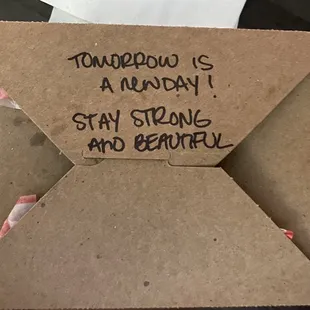 TOMORROW IS
A NEW DAY!
STAY STRONG
AND BEAUTIFUL